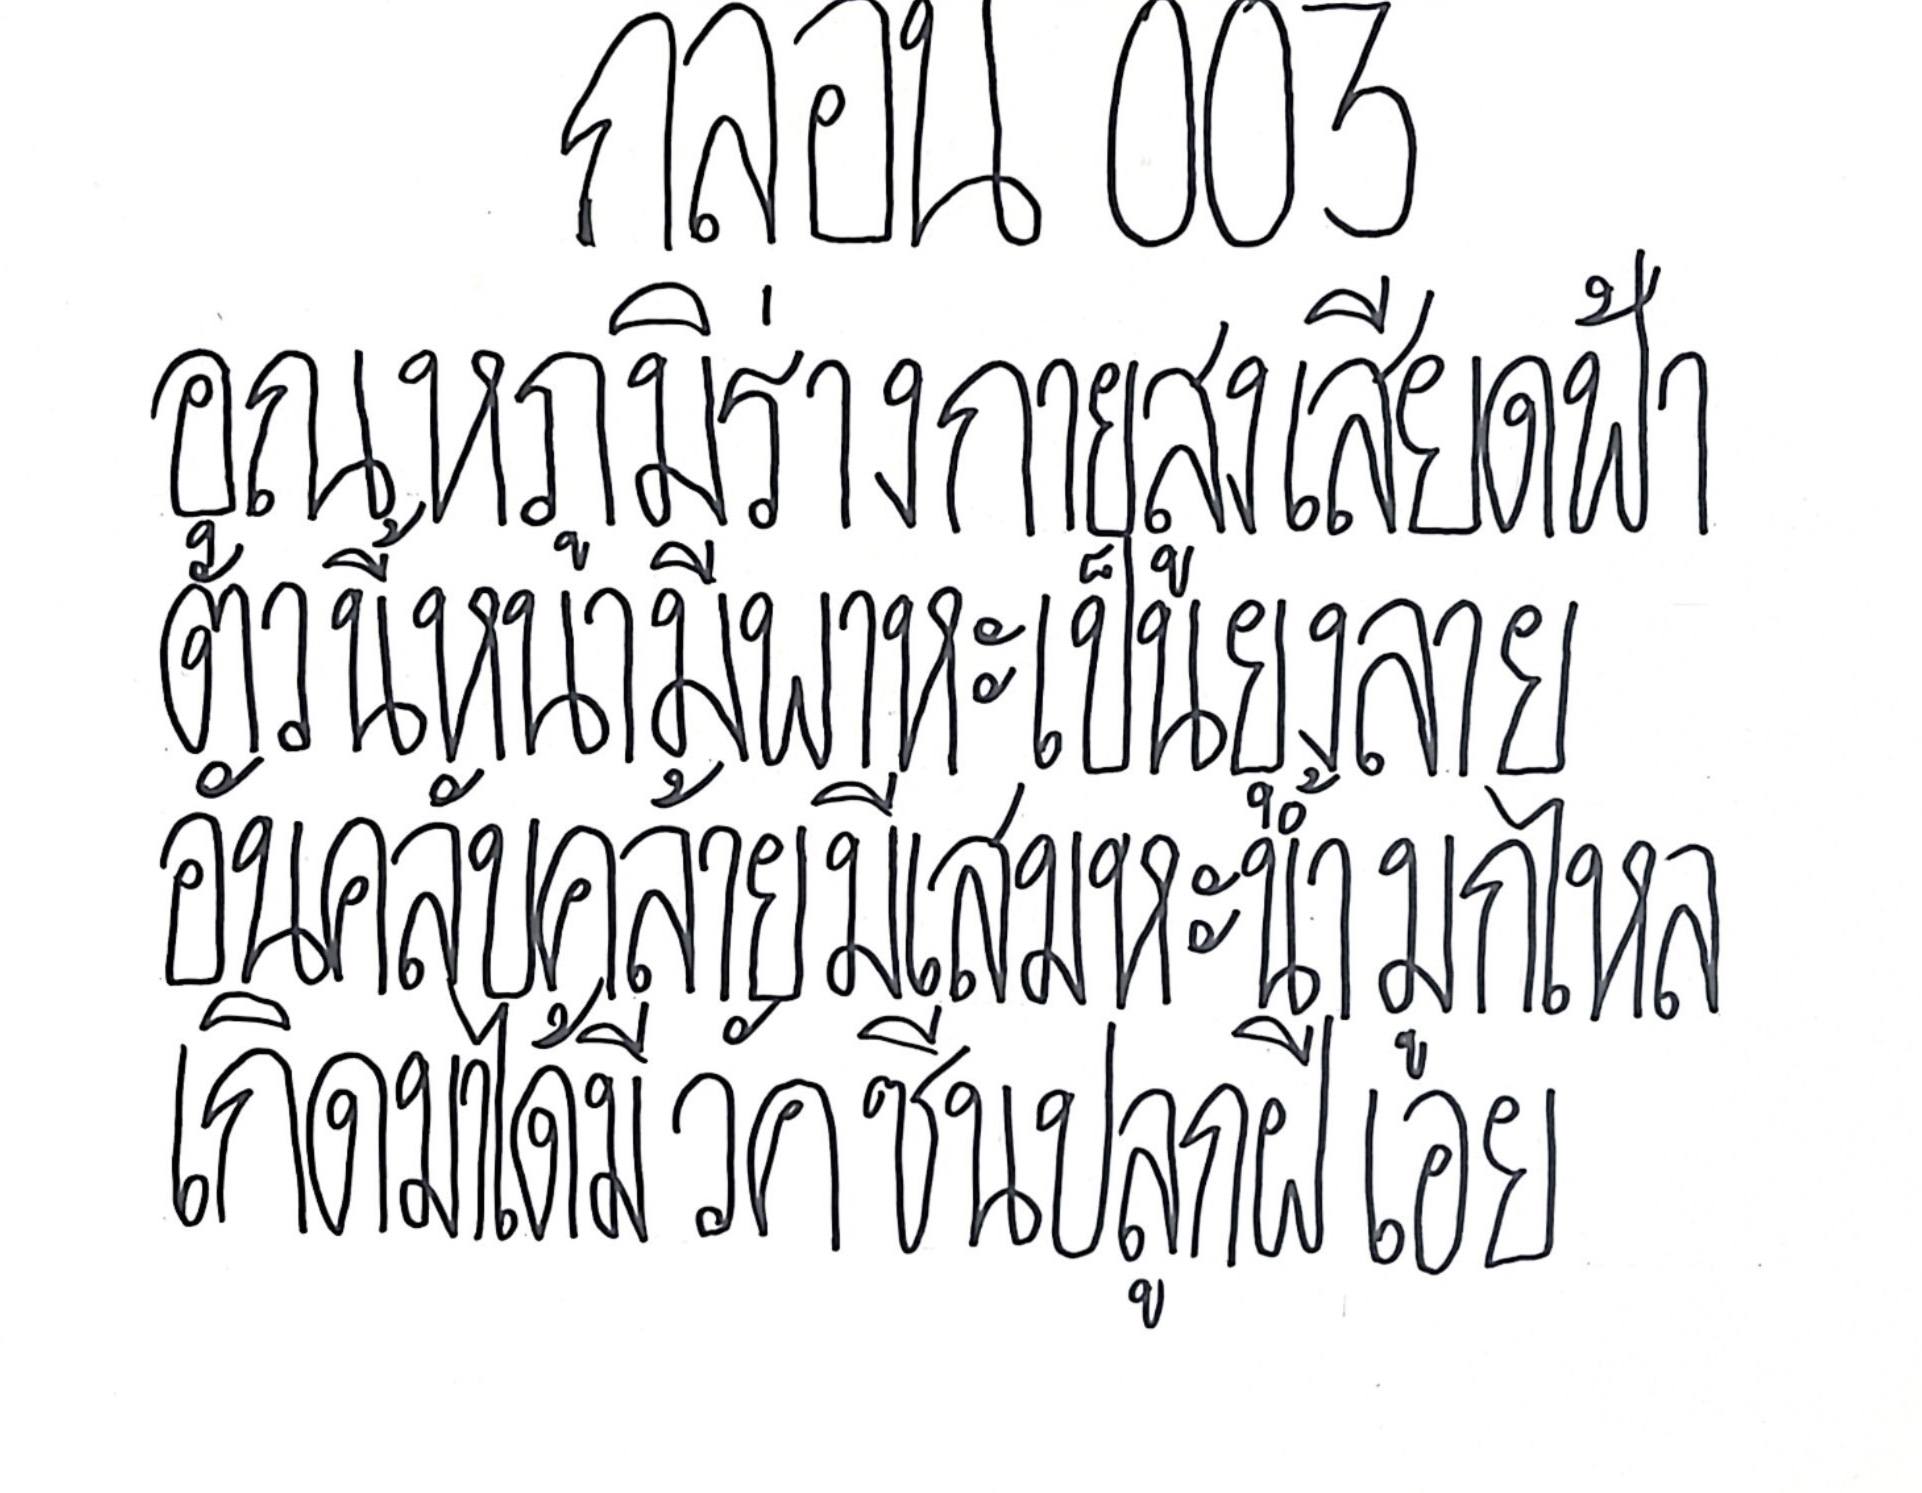 กลอน 003
อุณหภูมิร่างกายสูงเสียดฟ้า
ตัวนี้หนามีพาหะเป็นยุงลาย
อันคลับคล้ายมีเสมหะน้ำมูกไหล
เกิดมาได้มีวัคซีนปลูกฝีเอย